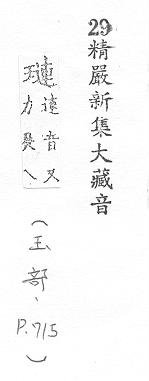 29精嚴新集大藏音
璉連音又
力
(玉部、P.715)